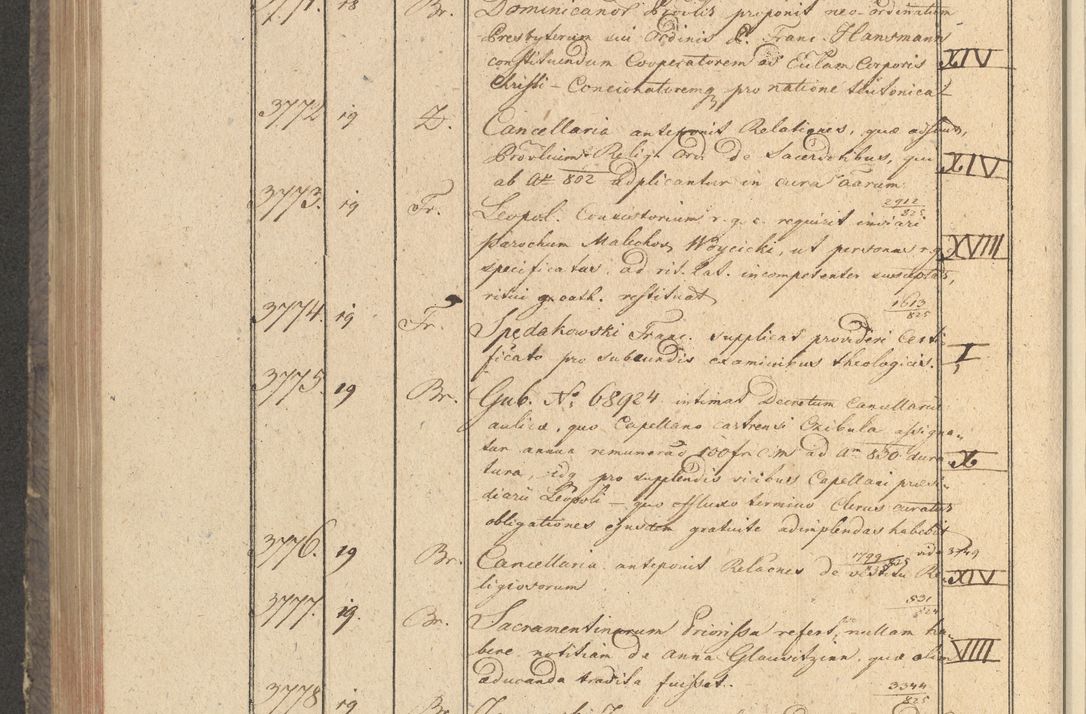 3771. 18 Br. Dominicanor proponit neo-ordinatum
Presbyterum sui Ordinis P. Franc. Hansmann
constituendum Cooperatorem ad Eccl'am Corporis XIV
Christi - Concionatoremq pro natione teutonica
3772 19 Z. Cancellaria anteponit Relationes, quæ
Religi Ord. de Sacerdotibus, qui XIV
ab Ao 802 adplicantur in cura a'arum
3773. 19 Fr. Leopol. Consistorium r. g. c. requirit inviari 2912/825
parochum Malechov Woycicki, ut personas r. g. XVIII
specificatas, ad rit. lat. incompetenter susceptas,
ritui gr. cath. restituat
3774. 19 Fr. Spędakowski Franc. supplicat provideri Certi 1613/825
ficato pro subeundis examinibus theologicis. I
3775. 19 Br. Gub. No 68924 intimat Decretum Cancellariæ
aulicæ, quo Capellano castrensi Czibula assigna
tur annua remuneratio 100 fr C.M ad Am 830 dura X
tura, idq pro supplendis vicibus Capellani præsi
diarii Leopoli - quo effluxo termino Clerus curatus
obligationes ejusdem gratuite adimplendas habebit
vide 3749
3776. 19 Br. Cancellaria anteponit Rela'ones de vestitu Re 1799/825 XIV
ligiosorum
831/824
3777. 19. Br. Sacramentinarum Priorissa refert, nullam ha
bere notitiam de Anna Glauvitzinn, quæ olim VIIII
aducanda tradita fuisset.
3344/825
3778 19 Br.